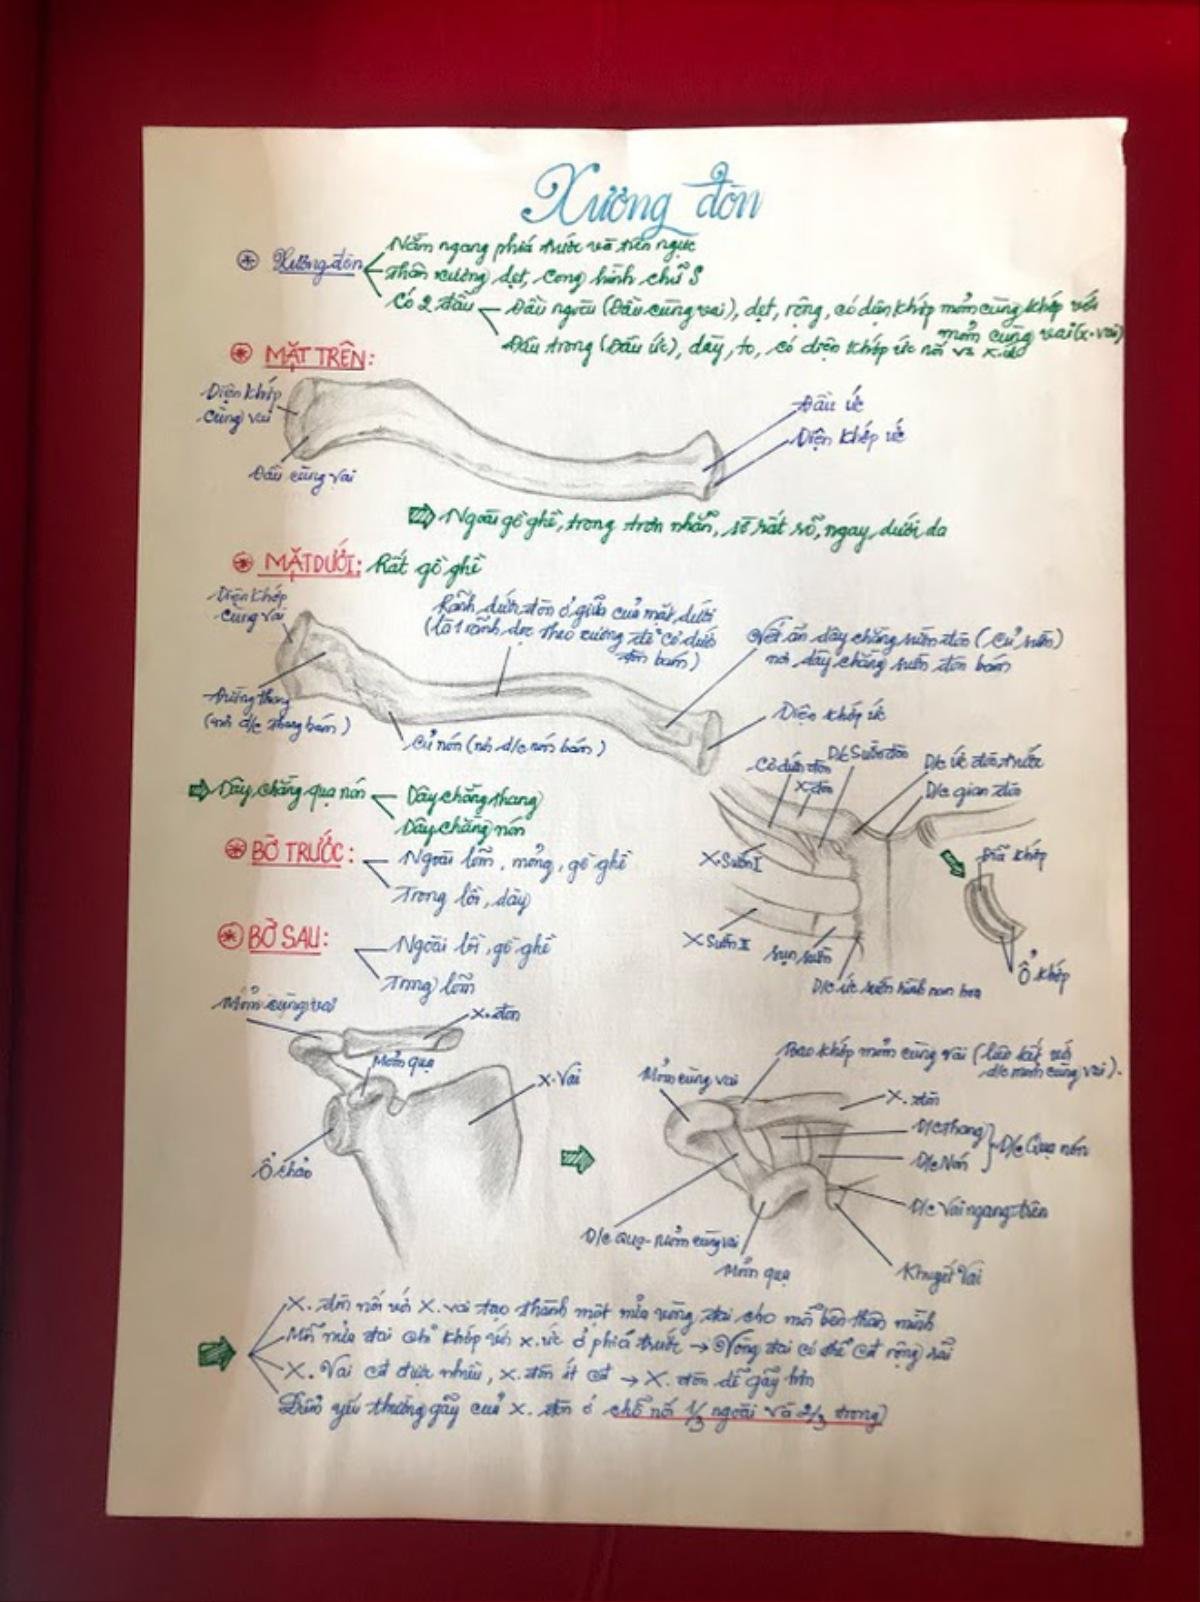 Xương đòn
Xương đòn
Nằm ngang phía trước và trên ngực
Thân xương dẹt, cong hình chữ S
Có 2 đầu
Đầu ngoài (Đầu cùng vai), dẹt, rộng, có diện khớp mỏm cùng khớp với
mỏm cùng vai (x.vai)
Đầu trong (Đầu ức), dày, to, có diện khớp ức nối và x.ức
MẶT TRÊN:
Diện khớp
cùng vai
Đầu cùng vai
Đầu ức
Diện khớp ức
Ngoài gồ ghề, trong trơn nhẵn, sờ rất rõ, ngay dưới da
MẶT DƯỚI: Rất gồ ghề
Diện khớp
cùng vai
Rãnh dưới đòn ở giữa của mặt dưới
(là 1 rãnh dọc theo xương để cơ dưới
đòn bám)
Vết ấn dây chằng sườn đòn (củ sườn)
nơi dây chằng sườn đòn bám
Đường thang
(nơi d/c thang bám)
Củ nón (nơi d/c nón bám)
Diện khớp ức
Dây chằng quạ nón
Dây chằng thang
Dây chằng nón
Cơ dưới đòn
D/c Sườn đòn
X.đòn
D/c ức đòn trước
D/c gian đòn
X.Sườn I
X.Sườn II
Sụn sườn
D/c ức sườn hình nan hoa
Đĩa khớp
Ổ khớp
BỜ TRƯỚC:
Ngoài lõm, mỏng, gồ ghề
Trong lồi, dày
BỜ SAU:
Ngoài lồi, gồ ghề
Trong lõm
Mỏm cùng vai
X.đòn
Mỏm quạ
X.Vai
Ổ chảo
Bao khớp mỏm cùng vai (liên kết với
d/c mỏm cùng vai).
Mỏm cùng vai
X.đòn
D/c thang
D/c Nón
D/c Quạ nón
D/c Vai ngang trên
D/c quạ-mỏm cùng vai
Mỏm quạ
Khuyết Vai
X. đòn nối với X.vai tạo thành một nửa vòng đai cho mỗi bên thân mình
Mỗi nửa đai chỉ khớp với x.ức ở phía trước → Vòng đai có thể cđ rộng rãi
X. Vai cđ được nhiều, x.đòn ít cđ → X. đòn dễ gãy hơn
Điểm yếu thường gãy của x. đòn ở chỗ nối 1/3 ngoài và 2/3 trong